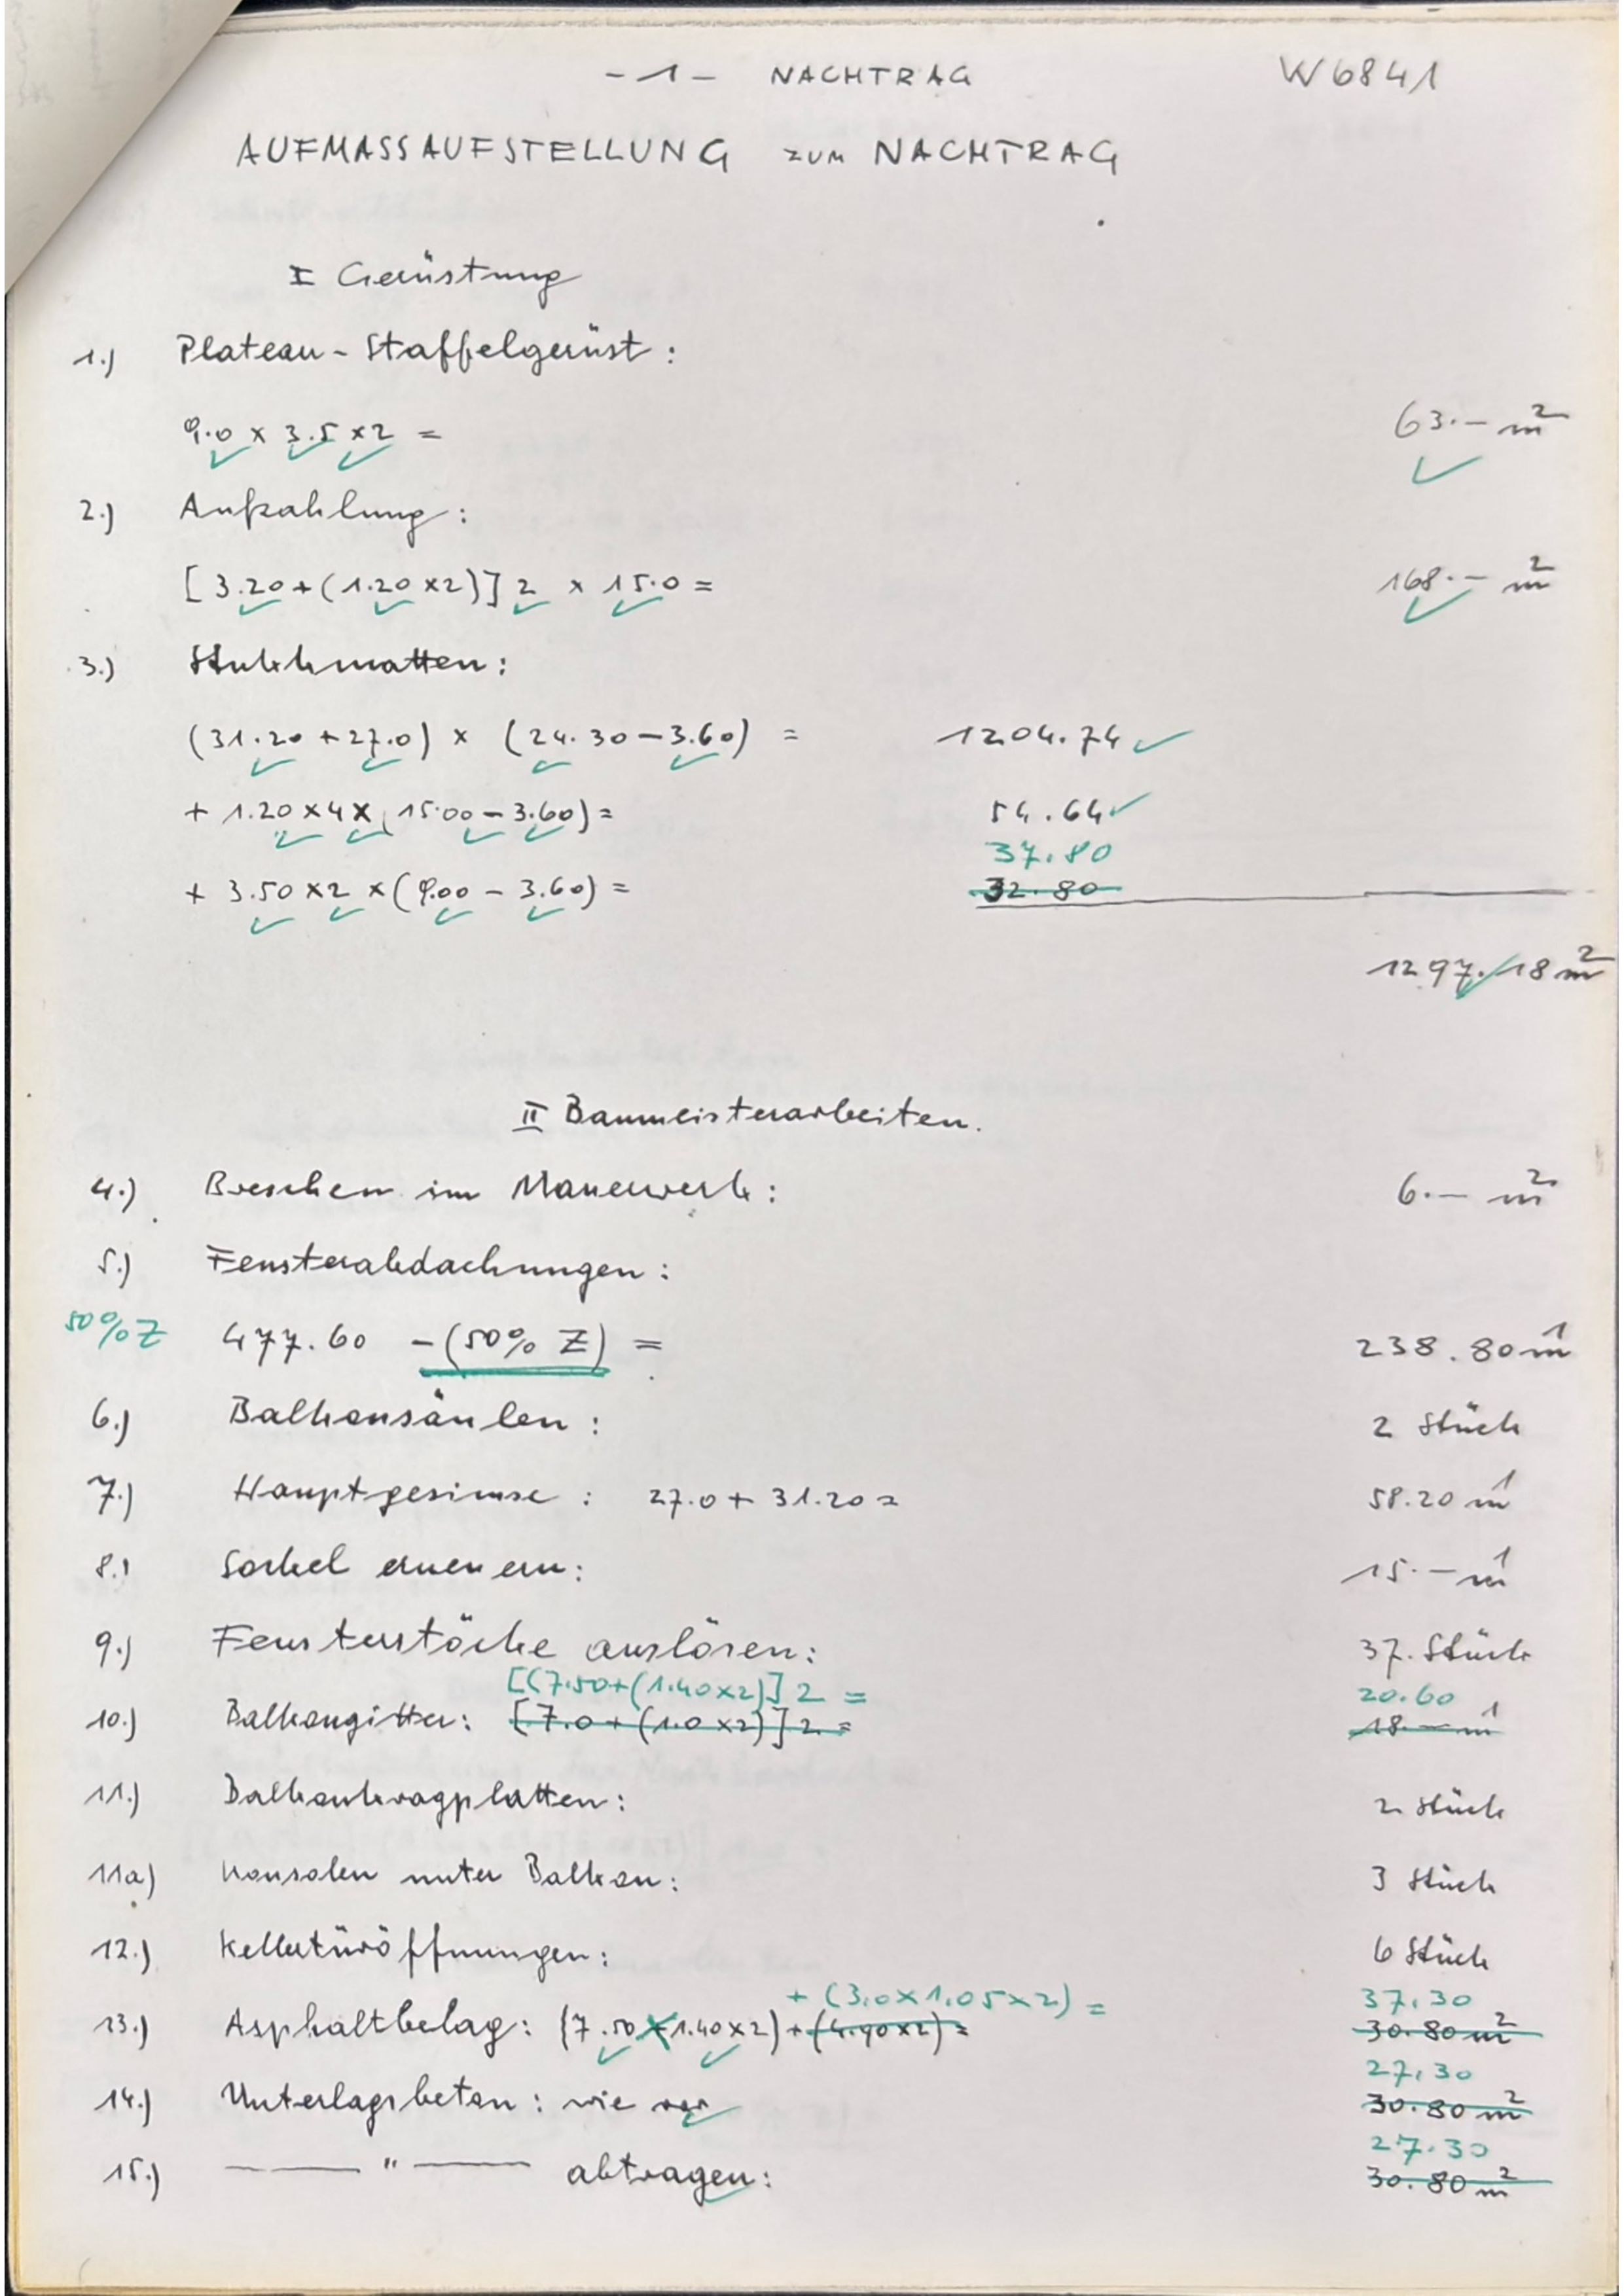 - 1 - NACHTRAG W6841
AUFMASSAUFSTELLUNG ZUM NACHTRAG
I Gerüstung
1.) Plateau - Staffelgerüst :
9.0 x 3.5 x 2 = 63.- m²
2.) Aufzahlung :
[3.20 + (1.20 x 2)] 2 x 15.0 = 168.- m²
3.) Stukkmatten :
(31.20 + 27.0) x (24.30 - 3.60) = 1204.74
+ 1.20 x 4 x (15.00 - 3.60) = 54.64
37.80
+ 3.50 x 2 x (9.00 - 3.60) = 32.80
1297.18 m²
II Baumeisterarbeiten.
4.) Breschen im Mauerwerk : 6.- m²
5.) Fensterabdachungen :
50% Z 477.60 - (50% Z) = 238.80 m¹
6.) Balkonsäulen : 2 Stück
7.) Hauptgesimse : 27.0 + 31.20 = 58.20 m¹
8.) Sockel erneuern : 15.- m¹
9.) Fensterstöcke auslösen : 37. Stück
[(7.50 + (1.40 x 2)] 2 = 20.60
10.) Balkongitter : [7.0 + (1.0 x 2)] 2 = 18.- m¹
11.) Balkonkragplatten : 2 Stück
11a) Konsolen unter Balkon : 3 Stück
12.) Kellertüröffnungen : 6 Stück
+ (3.0 x 1.05 x 2) = 37.30
13.) Asphaltbelag : (7.50 x 1.40 x 2) + (4.90 x 2) = 30.80 m²
27.30
14.) Unterlagsbeton : wie vor 30.80 m²
27.30
15.) — " — abtragen : 30.80 m²